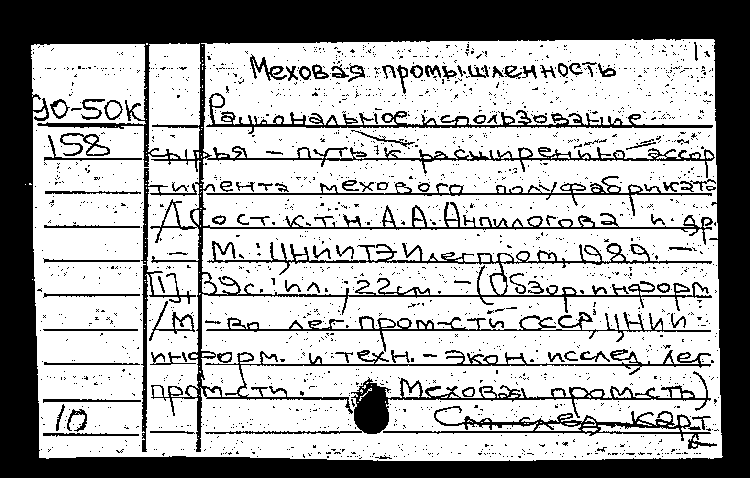 1.
Меховая промышленность
90-50к Рациональное использование
158 сырья – путь к расширению ассор
тимента мехового полуфабриката
/[Сост. к.т.н. А.А. Анпилогова и др.
. – М. : ЦНИИТЭИлегпром, 1989. –
39с. : ил. ; 22см. – (Обзор. информ
/М-во лег. пром-сти СССР, ЦНИИ
информ. и техн.-экон. исслед. лег.
пром-сти. Меховая пром-сть)
10 См. след. карт